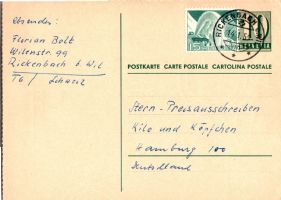 Absender:
Florian Bolt
Wilenstr. 99
Rickenbach b. Wil
TG / Schweiz
RICKENBACH
15
HELVETIA
POSTKARTE CARTE POSTALE CARTOLINA POSTALE
Stern-Preisausschreiben
Kilo und Köpfchen
Hamburg 100
Deutschland